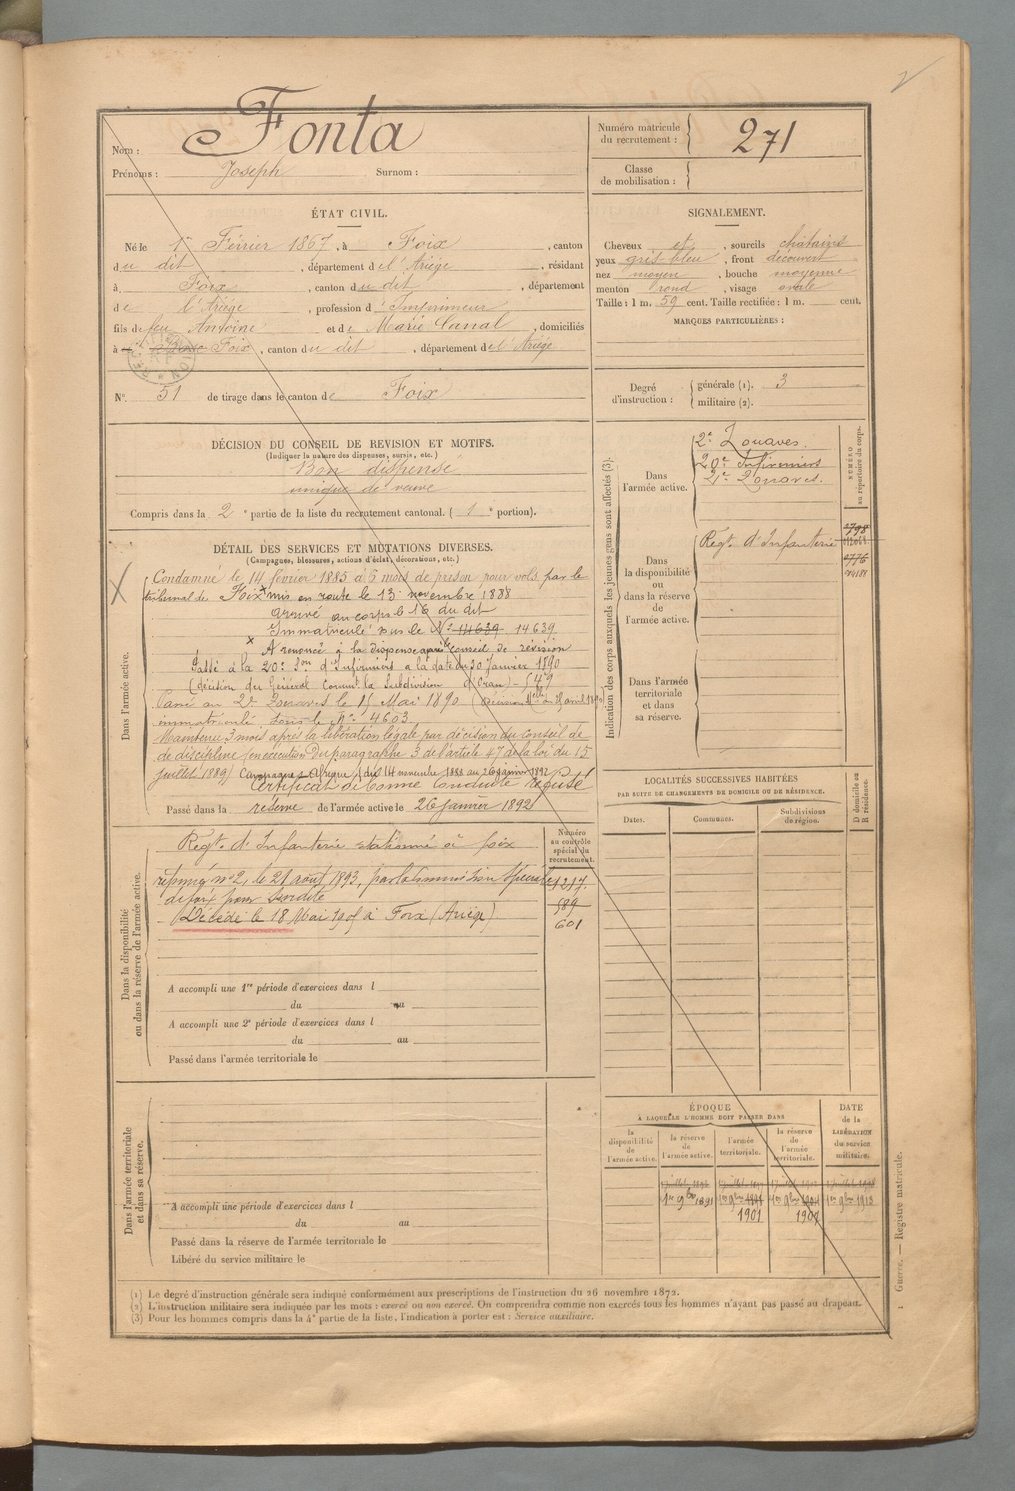 2
Nom : Fonta
Prénoms : Joseph Surnom :
Numéro matricule du recrutement : 271
Classe de mobilisation :
ÉTAT CIVIL.
Né le 1er Février 1867, à Foix, canton
du dit, département de l'Ariège, résidant
à Foix, canton du dit, département
de l'Ariège, profession d'Imprimeur
fils de feu Antoine et de Marie Canal, domiciliés
à Foix, canton du dit, département de l'Ariège
SIGNALEMENT.
Cheveux et, sourcils châtains
yeux gris-bleu, front découvert
nez moyen, bouche moyenne
menton rond, visage ovale
Taille : 1 m. 59 cent. Taille rectifiée : 1 m. cent.
MARQUES PARTICULIÈRES :
N° 51 de tirage dans le canton de Foix
Degré d'instruction : générale (1). 3
militaire (2).
DÉCISION DU CONSEIL DE REVISION ET MOTIFS.
(Indiquer la nature des dispenses, sursis, etc.)
Bon dispensé
unique de veuve
Compris dans la 2e partie de la liste du recrutement cantonal. (1e portion).
DÉTAIL DES SERVICES ET MUTATIONS DIVERSES.
(Campagnes, blessures, actions d'éclat, décorations, etc.)
Dans l'armée active.
Condamné le 14 février 1885 à 6 mois de prison pour vols par le
tribunal de Foix mis en route le 13 novembre 1888
arrivé au corps le 16 du dit
Immatriculé sous le N° 14639 14639
A renoncé à la dispense après conseil de révision
Passé à la 20e Son d'Infirmiers à la date du 30 janvier 1890
(décision du Général Commt la Subdivision d'Oran)
Passé au 2e Zouaves le 15 Mai 1890
immatriculé sous le N° 4603
Maintenu 3 mois après la libération légale par décision du Conseil de
de discipline (en exécution du paragraphe 3 de l'article 47 de la loi du 15
juillet 1889) Campagnes Afrique du 14 novembre 1888 au 26 janvier 1892
Certificat de bonne conduite Refusé
Passé dans la réserve de l'armée active le 26 janvier 1892
Indication des corps auxquels les jeunes gens sont affectés (3).
Dans l'armée active.
2e Zouaves.
20e Infirmiers
2e Zouaves.
NUMÉRO au répertoire du corps.
Dans la disponibilité ou dans la réserve de l'armée active.
Regt. d'Infanterie
Dans l'armée territoriale et dans sa réserve.
LOCALITÉS SUCCESSIVES HABITÉES
PAR SUITE DE CHANGEMENTS DE DOMICILE OU DE RÉSIDENCE.
Dates. Communes. Subdivisions de région.
D domicile ou R résidence.
Dans la disponibilité ou dans la réserve de l'armée active.
Numéro au contrôle spécial du recrutement.
Regt. d'Infanterie stationné à Foix
réformé n° 2, le 21 août 1893, par la Commission Spéciale 1217.
de foix pour surdité 589
Décédé le 18 Mai 1905 à Foix (Ariège) 601
A accompli une 1re période d'exercices dans l
du au
A accompli une 2e période d'exercices dans l
du au
Passé dans l'armée territoriale le
Dans l'armée territoriale et dans sa réserve.
A accompli une période d'exercices dans l
du au
Passé dans la réserve de l'armée territoriale le
Libéré du service militaire le
ÉPOQUE
À LAQUELLE L'HOMME DOIT PASSER DANS
DATE de la LIBÉRATION du service militaire.
la disponibilité de l'armée active.
la réserve de l'armée active.
l'armée territoriale.
la réserve de l'armée territoriale.
1er 9bre 1891 1er 9bre 1er 9bre 1er 9bre 1913
1901 1907
(1) Le degré d'instruction générale sera indiqué conformément aux prescriptions de l'instruction du 26 novembre 1872.
(2) L'instruction militaire sera indiquée par les mots : exercé ou non exercé. On comprendra comme non exercés tous les hommes n'ayant pas passé au drapeau.
(3) Pour les hommes compris dans la 4e partie de la liste, l'indication à porter est : Service auxiliaire.
1 Guerre. — Registre matricule.